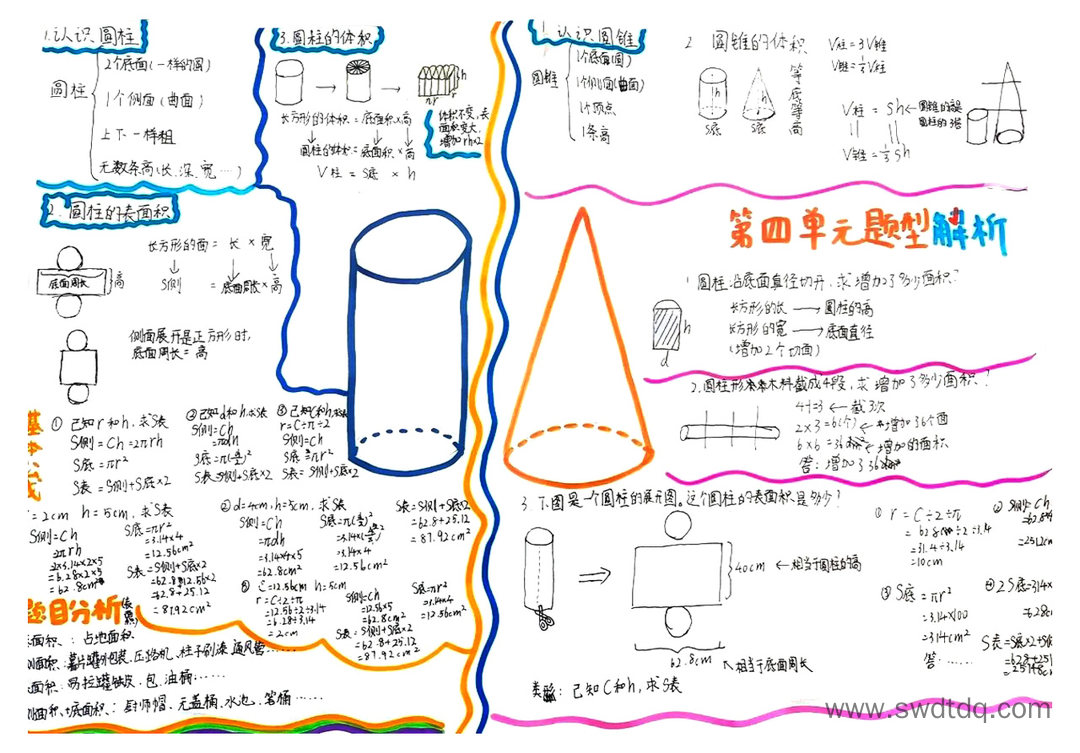 1.认识圆柱
圆柱
2个底面(一样的圆)
1个侧面(曲面)
上下一样粗
无数条高(长、深、宽……)
3.圆柱的体积
h
πr
r
长方形的体积 = 底面积×高
圆柱的体积 = 底面积×高
V柱 = S底 × h
体积不变,表
面积变大,
增加rh×2
2.圆柱的表面积
长方形的面 = 长 × 宽
S侧 = 底面周长×高
底面周长
高
侧面展开是正方形时,
底面周长 = 高
① 已知r和h,求S表
S侧=Ch=2πrh
S底=πr²
S表=S侧+S底×2
②已知d和h,求S表
S侧=Ch
=πdh
S表=S侧+S底×2
③已知C和h,求S表
r=C÷π÷2
S侧=Ch
S底=πr²
S表=S侧+S底×2
=2cm h=5cm,求S表
S侧=Ch
2πrh
=2×3.14×2×5
=6.28×2×5
=62.8cm²
S底=πr²
=3.14×4
=12.56cm²
S表=S侧+S底×2
=62.8+12.56×2
=62.8+25.12
=87.92cm²
②d=4cm,h=5cm,求S表
S侧=Ch
=πdh
=3.14×4×5
=62.8cm²
=3.14×4
=12.56cm²
S表=S侧+S底×2
=62.8+25.12
=87.92cm²
③ C=12.56cm h=5cm
r=C÷2÷π
=12.56÷2÷3.14
=6.28÷3.14
=2cm
S侧=Ch
=12.56×5
=62.8cm²
S底=πr²
=3.14×4
=12.56cm²
S表=S侧+S底×2
=62.8+25.12
=87.92cm²
题目分析
面积:占地面积
面积:薯片罐外包装、压路机、柱子刷漆、通风管……
面积:易拉罐铁皮、包、油桶……
侧面积+底面积:厨师帽、无盖桶、水池、笔桶……
1.认识圆锥
圆锥
1个底面(圆)
1个侧面(曲面)
1个顶点
1条高
2 圆锥的体积
V柱=3V锥
V锥=⅓V柱
h
h
S底
S底
等底等高
V柱 = Sh
V锥=⅓Sh
圆柱的3倍
第四单元题型解析
1.圆柱沿底面直径切开,求增加了多少面积?
长方形的长→圆柱的高
长方形的宽→底面直径
(增加2个切面)
h
d
2.圆柱形木料截成4段,求增加了多少面积?
4-1=3←截3次
2×3=6(个)←增加6个面
6×6=36 ←增加的面积
答:增加了36
3.下图是一个圆柱的展开图。这个圆柱的表面积是多少?
40cm ←相当于圆柱的高
62.8cm
相当于底面周长
① r=C÷2÷π
=62.8÷2÷3.14
=31.4÷3.14
=10cm
② S侧=Ch
=62.8
=2512cm
③ S底=πr²
=3.14×100
=314cm²
答:……
④2S底=314×
=628c
S表=S底×2+S侧
=628+251
类题:已知C和h,求S表
www.swdtdq.com